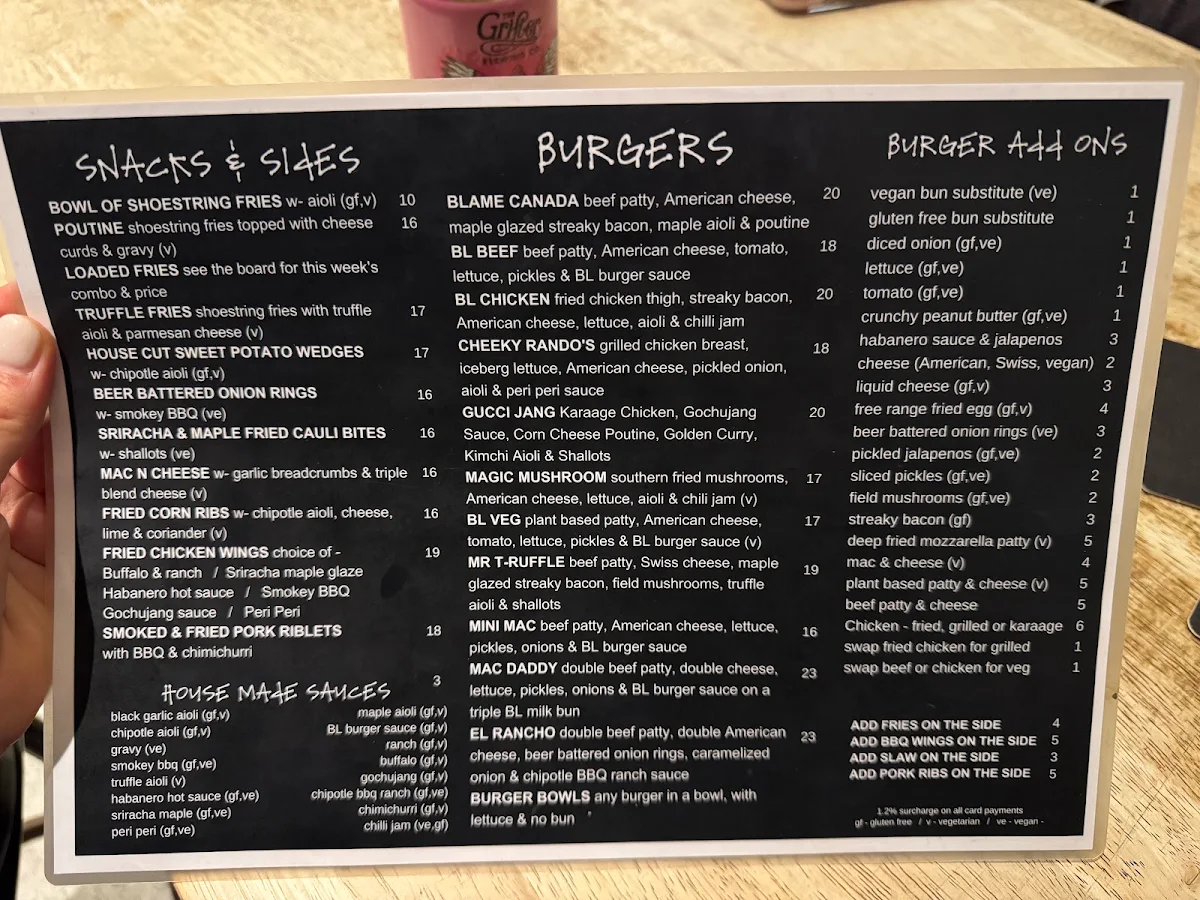 THE
Grifter
BREWING CO
SNACKS & SIdES
BOWL OF SHOESTRING FRIES w- aioli (gf,v) 10
POUTINE shoestring fries topped with cheese 16
curds & gravy (v)
LOADED FRIES see the board for this week's
combo & price
TRUFFLE FRIES shoestring fries with truffle 17
aioli & parmesan cheese (v)
HOUSE CUT SWEET POTATO WEDGES 17
w- chipotle aioli (gf,v)
BEER BATTERED ONION RINGS 16
w- smokey BBQ (ve)
SRIRACHA & MAPLE FRIED CAULI BITES 16
w- shallots (ve)
MAC N CHEESE w- garlic breadcrumbs & triple 16
blend cheese (v)
FRIED CORN RIBS w- chipotle aioli, cheese, 16
lime & coriander (v)
FRIED CHICKEN WINGS choice of - 19
Buffalo & ranch / Sriracha maple glaze
Habanero hot sauce / Smokey BBQ
Gochujang sauce / Peri Peri
SMOKED & FRIED PORK RIBLETS 18
with BBQ & chimichurri
HOUSE MAdE SAUCES 3
black garlic aioli (gf,v)
chipotle aioli (gf,v)
gravy (ve)
smokey bbq (gf,ve)
truffle aioli (v)
habanero hot sauce (gf,ve)
sriracha maple (gf,ve)
peri peri (gf,ve)
maple aioli (gf,v)
BL burger sauce (gf,v)
ranch (gf,v)
buffalo (gf,v)
gochujang (gf,v)
chipotle bbq ranch (gf,ve)
chimichurri (gf,v)
chilli jam (ve,gf)
BURGERS
BLAME CANADA beef patty, American cheese, 20
maple glazed streaky bacon, maple aioli & poutine
BL BEEF beef patty, American cheese, tomato, 18
lettuce, pickles & BL burger sauce
BL CHICKEN fried chicken thigh, streaky bacon, 20
American cheese, lettuce, aioli & chilli jam
CHEEKY RANDO'S grilled chicken breast, 18
iceberg lettuce, American cheese, pickled onion,
aioli & peri peri sauce
GUCCI JANG Karaage Chicken, Gochujang 20
Sauce, Corn Cheese Poutine, Golden Curry,
Kimchi Aioli & Shallots
MAGIC MUSHROOM southern fried mushrooms, 17
American cheese, lettuce, aioli & chili jam (v)
BL VEG plant based patty, American cheese, 17
tomato, lettuce, pickles & BL burger sauce (v)
MR T-RUFFLE beef patty, Swiss cheese, maple 19
glazed streaky bacon, field mushrooms, truffle
aioli & shallots
MINI MAC beef patty, American cheese, lettuce, 16
pickles, onions & BL burger sauce
MAC DADDY double beef patty, double cheese, 23
lettuce, pickles, onions & BL burger sauce on a
triple BL milk bun
EL RANCHO double beef patty, double American 23
cheese, beer battered onion rings, caramelized
onion & chipotle BBQ ranch sauce
BURGER BOWLS any burger in a bowl, with
lettuce & no bun
BURGER Add ONS
vegan bun substitute (ve) 1
gluten free bun substitute 1
diced onion (gf,ve) 1
lettuce (gf,ve) 1
tomato (gf,ve) 1
crunchy peanut butter (gf,ve) 1
habanero sauce & jalapenos 3
cheese (American, Swiss, vegan) 2
liquid cheese (gf,v) 3
free range fried egg (gf,v) 4
beer battered onion rings (ve) 3
pickled jalapenos (gf,ve) 2
sliced pickles (gf,ve) 2
field mushrooms (gf,ve) 2
streaky bacon (gf) 3
deep fried mozzarella patty (v) 5
mac & cheese (v) 4
plant based patty & cheese (v) 5
beef patty & cheese 5
Chicken - fried, grilled or karaage 6
swap fried chicken for grilled 1
swap beef or chicken for veg 1
ADD FRIES ON THE SIDE 4
ADD BBQ WINGS ON THE SIDE 5
ADD SLAW ON THE SIDE 3
ADD PORK RIBS ON THE SIDE 5
1.2% surcharge on all card payments
gf - gluten free / v - vegetarian / ve - vegan -